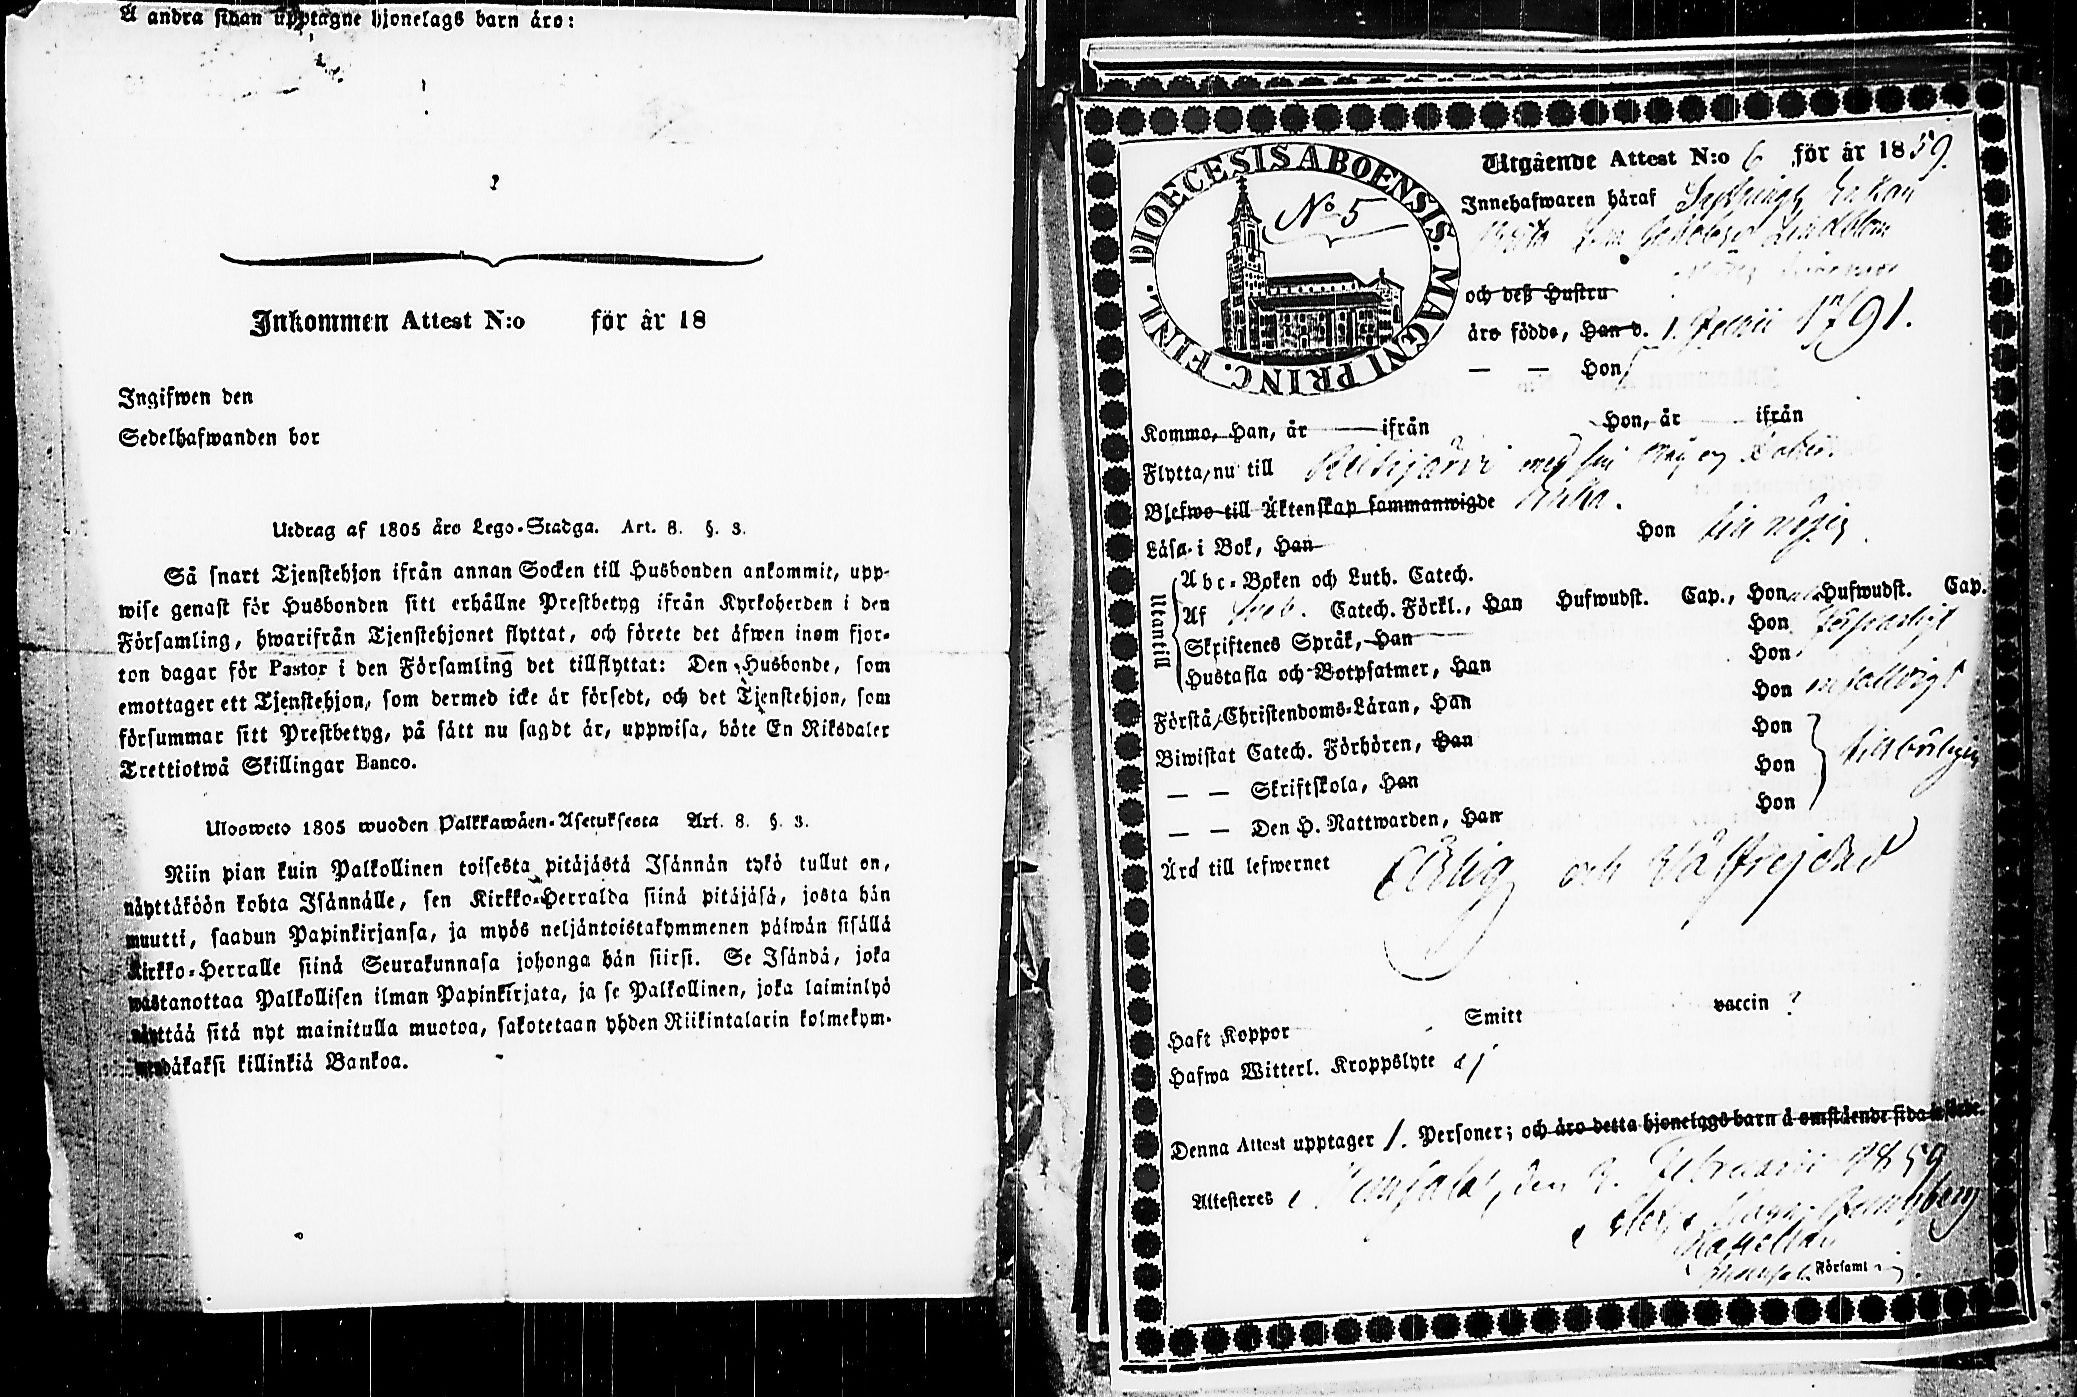 A andra sidan upptagne hjonelags barn äro:
Inkommen Attest N:o för år 18
Ingifwen den
Sedelhafwanden bor
Utdrag af 1805 års Lego-Stadga. Art. 8. §. 3.
Så snart Tjenstehjon ifrån annan Socken till Husbonden ankommit, upp-
wise genast för Husbonden sitt erhållne Prestbetyg ifrån Kyrkoherden i den
Församling, hwarifrån Tjenstehjonet flyttat, och förete det äfwen inom fjor-
ton dagar för Pastor i den Församling det tillflyttat: Den Husbonde, som
emottager ett Tjenstehjon, som dermed icke är försedt, och det Tjenstehjon, som
försummar sitt Prestbetyg, på sätt nu sagdt är, uppwisa, böte En Riksdaler
Trettiotwå Skillingar Banco.
Uloosweto 1805 wuoden Palkkawäen-Asetuksesta Art. 8. §. 3.
Niin pian kuin Palkollinen toisesta pitäjästä Isännän tykö tullut on,
näyttäköön kohta Isännälle, sen Kirkko-Herralda siinä pitäjäsä, josta hän
muutti, saadun Papinkirjansa, ja myös neljäntoistakymmenen päiwän sisällä
Kirkko-Herralle siinä Seurakunnasa johonga hän siirsi. Se Isändä, joka
wastanottaa Palkollisen ilman Papinkirjata, ja se Palkollinen, joka laiminlyö
näyttää sitä nyt mainitulla muotoa, sakotetaan yhden Riikintalarin kolmekym-
mendäkaksi killinkiä Bankoa.
DIOECESIS ABOENSIS. MAGNI PRINC. FINL.
No 5
Utgående Attest N:o 6 för år 1859.
Innehafwaren häraf Enkan
Lindblom
och deß Hustru
äro födde, Han d. 1. Junii 1791.
— — Hon
Kommo, Han, år ifrån Hon, år ifrån
Flytta, nu till Reisijärvi med sin
Blefwo till Äktenskap sammanwigde
Läsa i Bok, Han Hon till nöjes
Utantill
Abc-Boken och Luth. Catech.
Af Sveb. Catech. Förkl., Han Hufwudst. Cap., Hon Hufwudst. Cap.
Skriftenes Språk, Han Hon försvarligt
Hustafla och Botpsalmer, Han Hon
Förstå Christendoms-Läran, Han Hon enfalldigt
Biwistat Catech. Förhören, Han Hon
— — Skriftskola, Han Hon tillbörligen
— — Den H. Nattwarden, Han Hon
Äro till lefwernet Ärlig och Välfrejdad
Haft Koppor Smitt vaccin ?
Hafwa Witterl. Kroppslyte ej
Denna Attest upptager 1. Personer; och äro detta hjonelags barn å omstående sida införde.
Attesteres i den 9. Februarii 1859
Kapellan
Församl